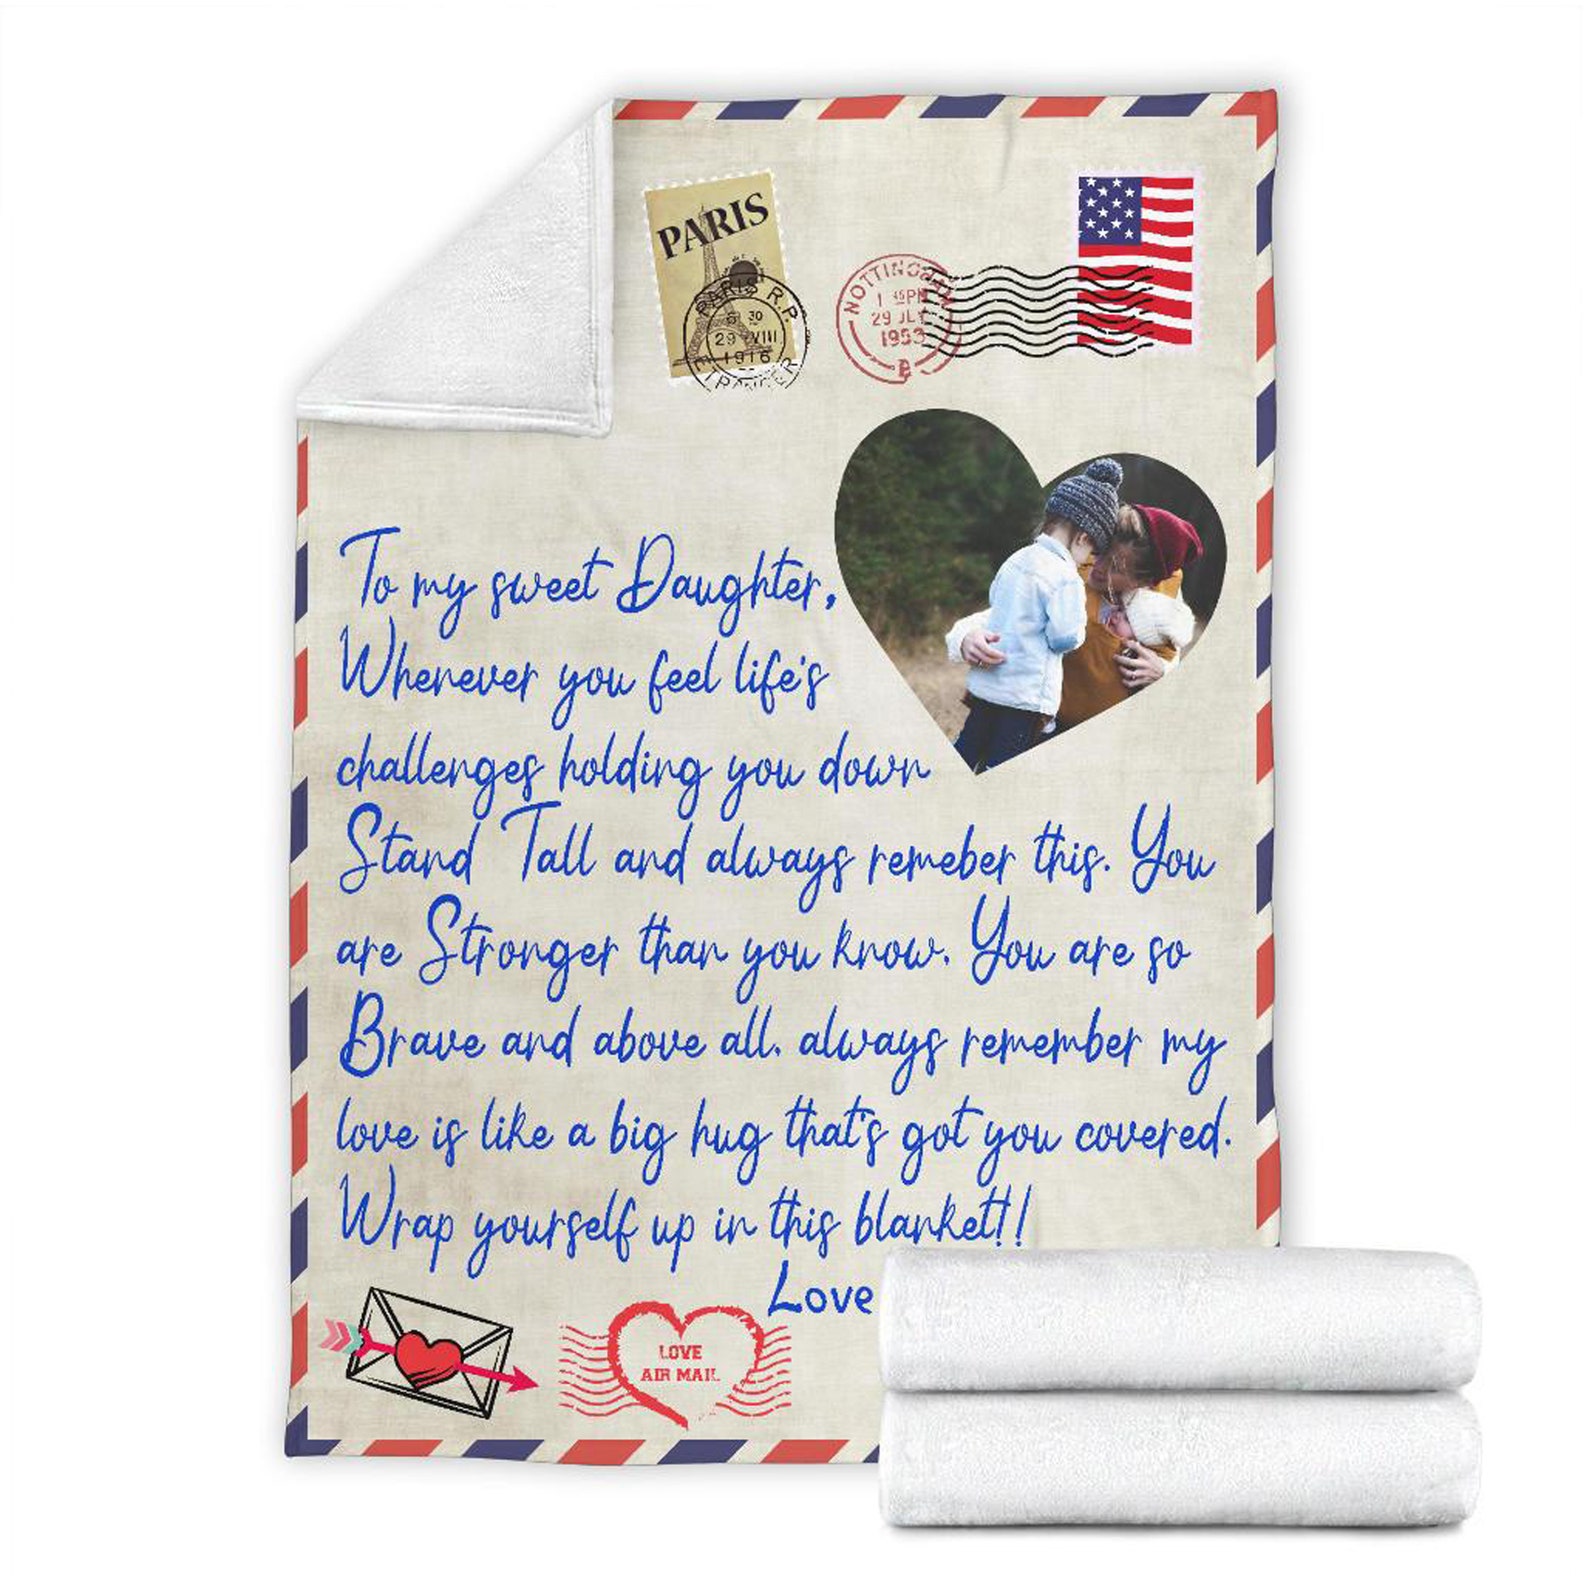 PARIS
PARIS R.P.
6 30
29 VIII
1916
ETRANGER
NOTTINGHAM
1 45PM
29 JLY
1953
To my sweet Daughter,
Whenever you feel life's
challenges holding you down
Stand Tall and always remeber this. You
are Stronger than you know. You are so
Brave and above all, always remember my
love is like a big hug that's got you covered.
Wrap yourself up in this blanket!!
Love
LOVE
AIR MAIL